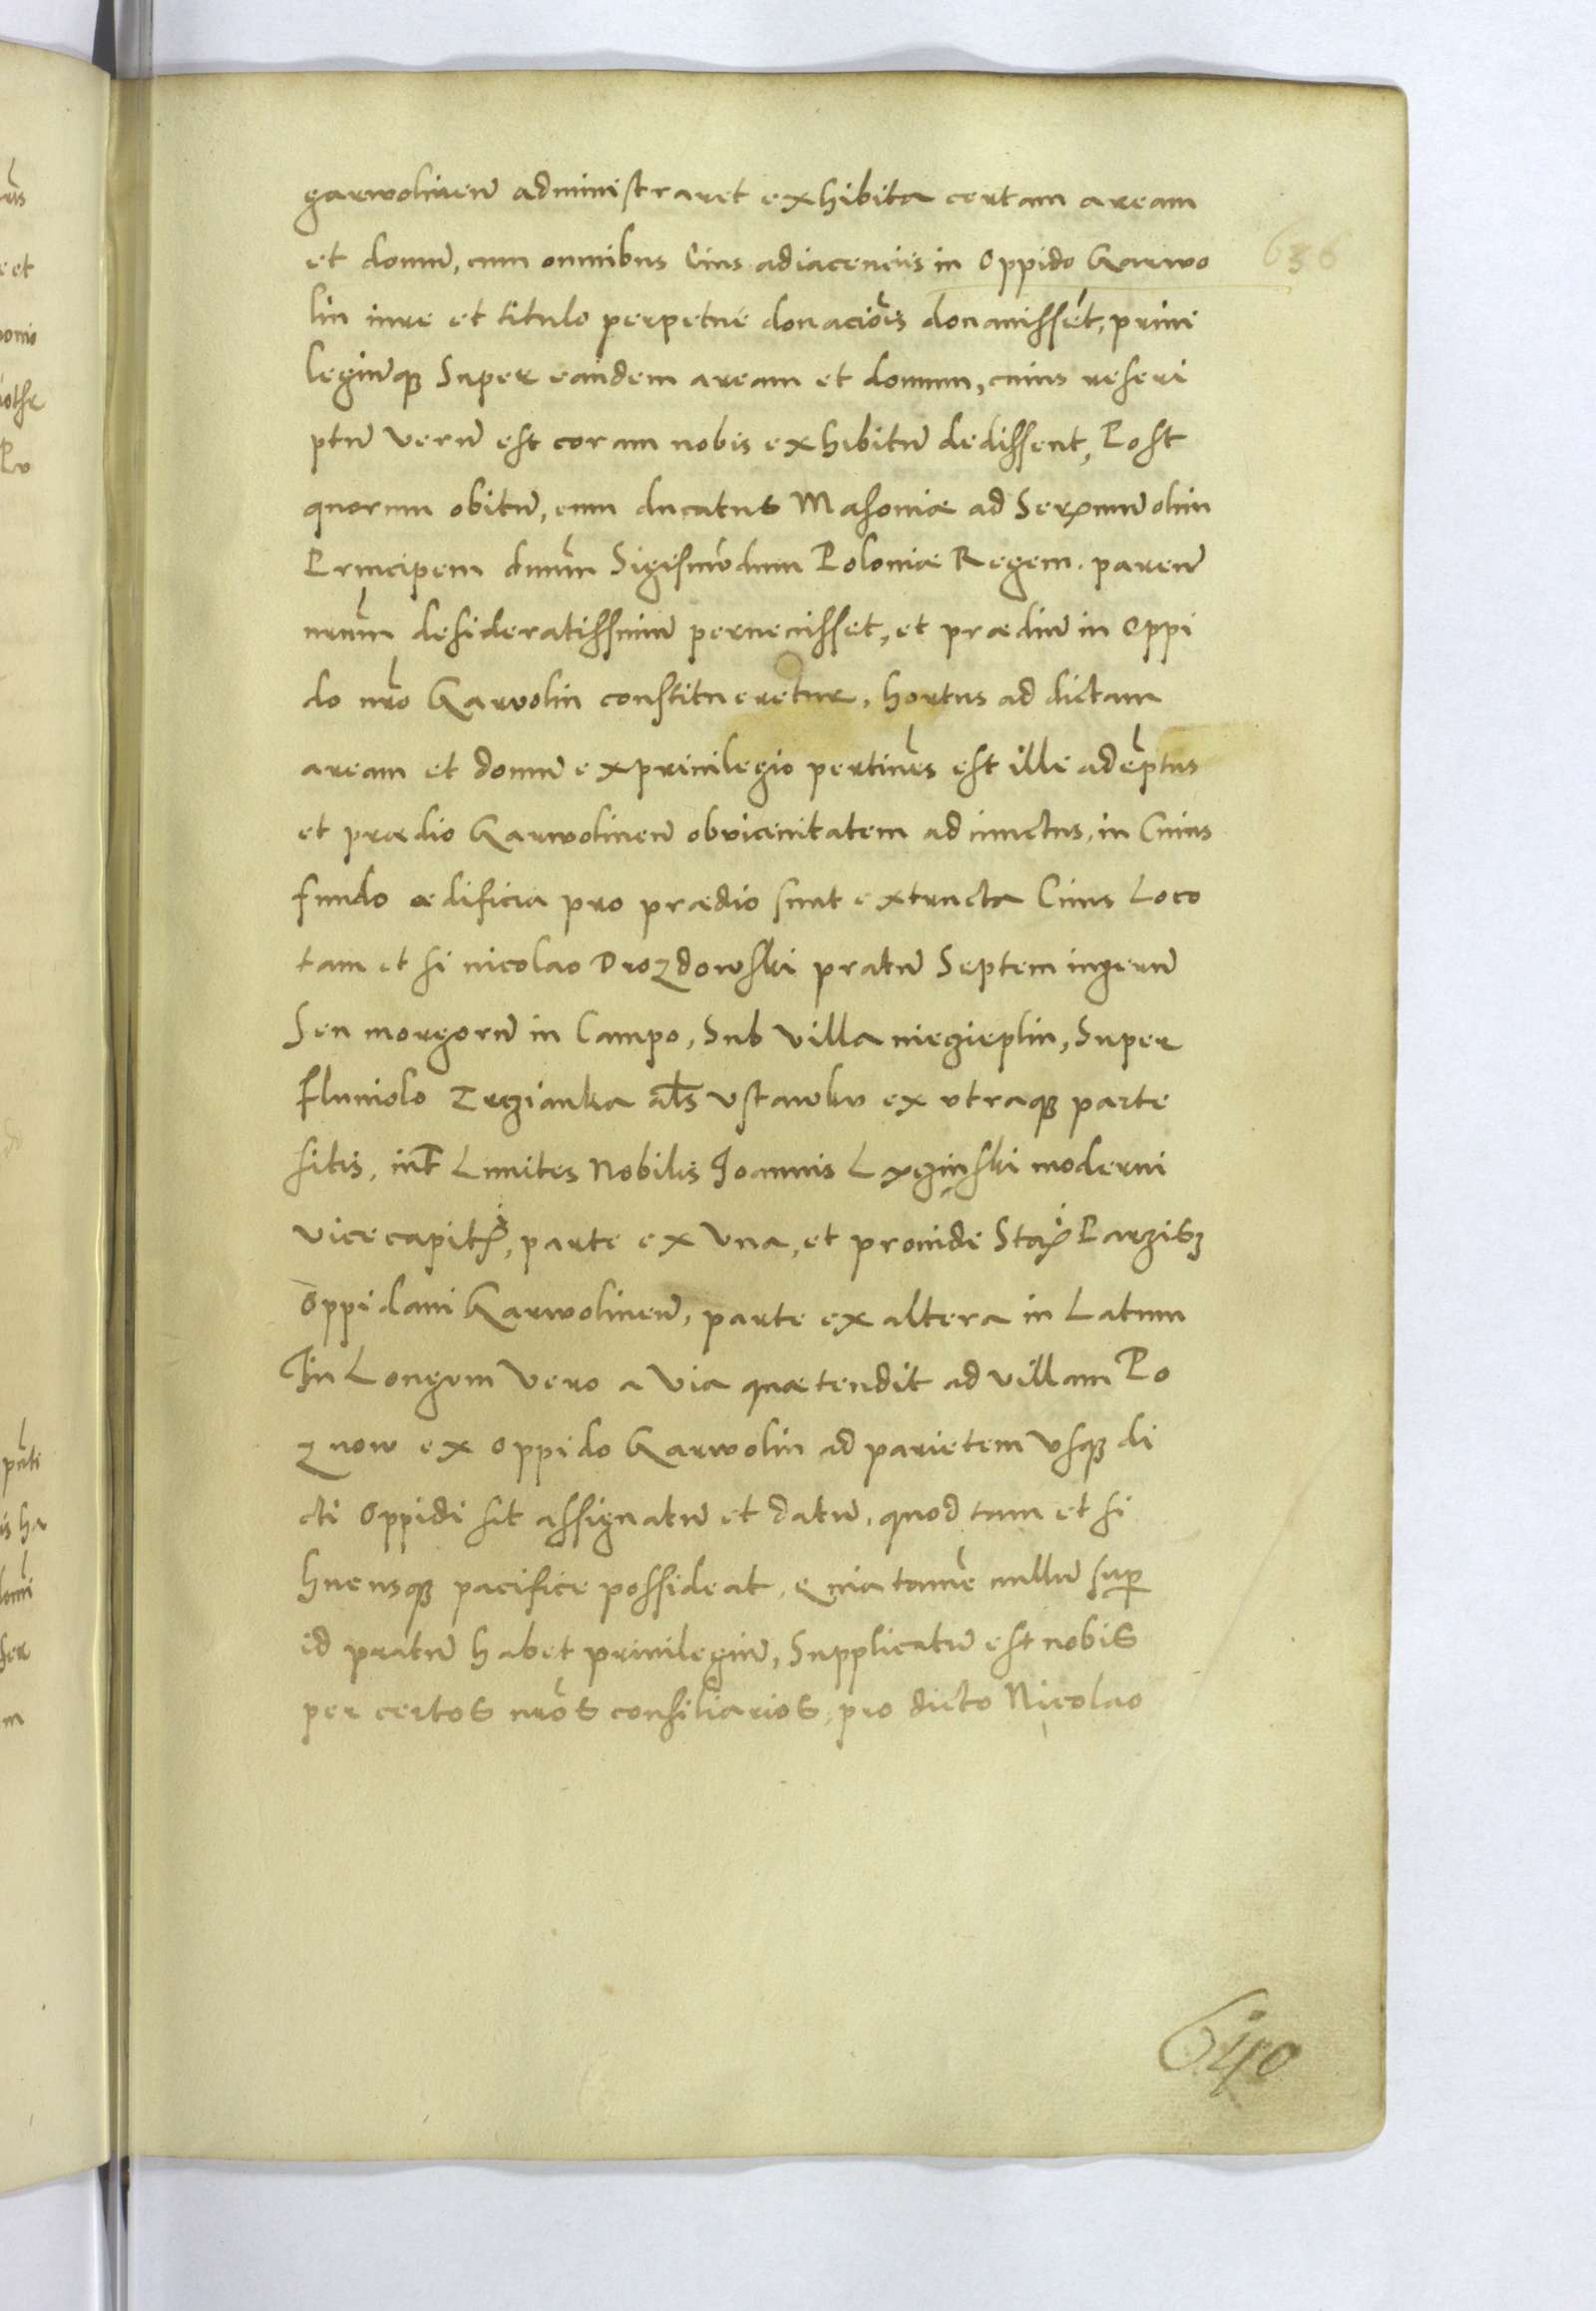 garwolinen̄ administraret exhibita certam aream
et domū, cum omnibus Cius adiacencijs in Oppido Garwo
lin iure et titulo perpetue donaciōis donauissēt, priui
legiūq3 Super eandem aream et domum, cuius reseri
ptū verū est coram nobis exhibitū dedissent, Post
quorum obitū, cum ducatus Masoniæ ad Serᵐᵘᵐ olim
Principem dnūm Sigismūdum Poloniæ Regem. paren̄
nrūm desideratissimū peruenisset, et prædiū in Oppi
do nrō Garvolin constitueretur, hortus ad dictam
aream et domū ex priuilegio pertinēs est illi adēptus
et prædio Garwolinen̄ ob vicinitatem adiunctus, in Cuius
fundo ædificia pro prædio sunt extructa Cuius Loco
tam et si nicolao Drozdowski pratū Septem iugerū
Seu morgorū in Campo, Sub villa niegieplin, Super
fluuiolo Irzianka als vstawku ex vtraq3 parte
sitis, int Limites Nobilis Joannis Lxginski moderni
vicecapit, parte ex Vna, et prouidi Sta Parzis3
Oppidani Garwolinen̄, parte ex altera in Latum
In Longum Vero a Via quæ tendit ad villam Po
znow ex oppido Garwolin ad parietem vsq3 di
cti Oppidi sit assignatū et datū, quod tam et si
hucusq3 pacifice possideat, quia tamē nullū sup
id pratū habet priuilegiū, Supplicatū est nobis
per certos nrōs consiliarios, pro dicto Nicolao
636
640